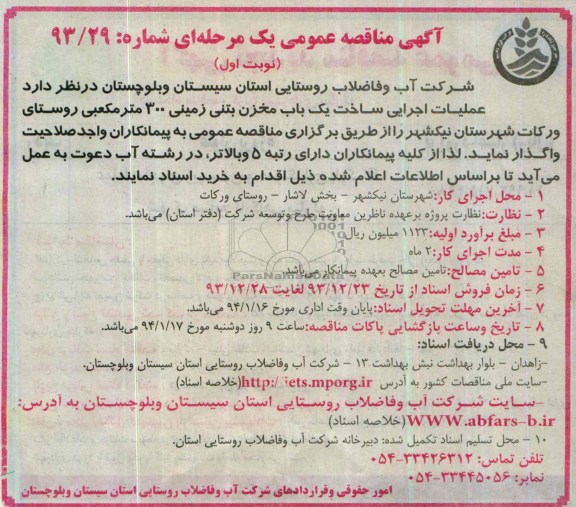 آگهی مناقصه عمومی یک مرحله‌ای شماره: ۹۳/۲۹
(نوبت اول)
شرکت آب وفاضلاب روستایی استان سیستان وبلوچستان درنظر دارد
عملیات اجرایی ساخت یک باب مخزن بتنی زمینی ۳۰۰ مترمکعبی روستای
ورکات شهرستان نیکشهر را از طریق برگزاری مناقصه عمومی به پیمانکاران واجدصلاحیت
واگذار نماید. لذا از کلیه پیمانکاران دارای رتبه ۵ وبالاتر، در رشته آب دعوت به عمل
می‌آید تا براساس اطلاعات اعلام شده ذیل اقدام به خرید اسناد نمایند.
۱ - محل اجرای کار: شهرستان نیکشهر - بخش لاشار - روستای ورکات
۲ - نظارت: نظارت پروژه برعهده ناظرین معاونت طرح وتوسعه شرکت (دفتر استان) می‌باشد.
۳ - مبلغ برآورد اولیه: ۱۱۲۳ میلیون ریال
۴ - مدت اجرای کار: ۲ ماه
۵ - تامین مصالح: تامین مصالح بعهده پیمانکار می‌باشد.
۶ - زمان فروش اسناد از تاریخ ۹۳/۱۲/۲۳ لغایت ۹۳/۱۲/۲۸
۷ - آخرین مهلت تحویل اسناد: پایان وقت اداری مورخ ۹۴/۱/۱۶ می‌باشد.
۸ - تاریخ وساعت بازگشایی پاکات مناقصه: ساعت ۹ روز دوشنبه مورخ ۹۴/۱/۱۷ می‌باشد.
۹ - محل دریافت اسناد:
-زاهدان - بلوار بهداشت نبش بهداشت ۱۳ - شرکت آب وفاضلاب روستایی استان سیستان وبلوچستان.
-سایت ملی مناقصات کشور به آدرس http://iets.mporg.ir (خلاصه اسناد)
-سایت شرکت آب وفاضلاب روستایی استان سیستان وبلوچستان به آدرس:
WWW.abfars-b.ir (خلاصه اسناد)
۱۰ - محل تسلیم اسناد تکمیل شده: دبیرخانه شرکت آب وفاضلاب روستایی استان.
تلفن تماس: ۳۳۴۲۶۳۱۲-۰۵۴
نمابر: ۳۳۴۴۵۰۵۶-۰۵۴
امور حقوقی وقراردادهای شرکت آب وفاضلاب روستایی استان سیستان وبلوچستان
ParsNamadData